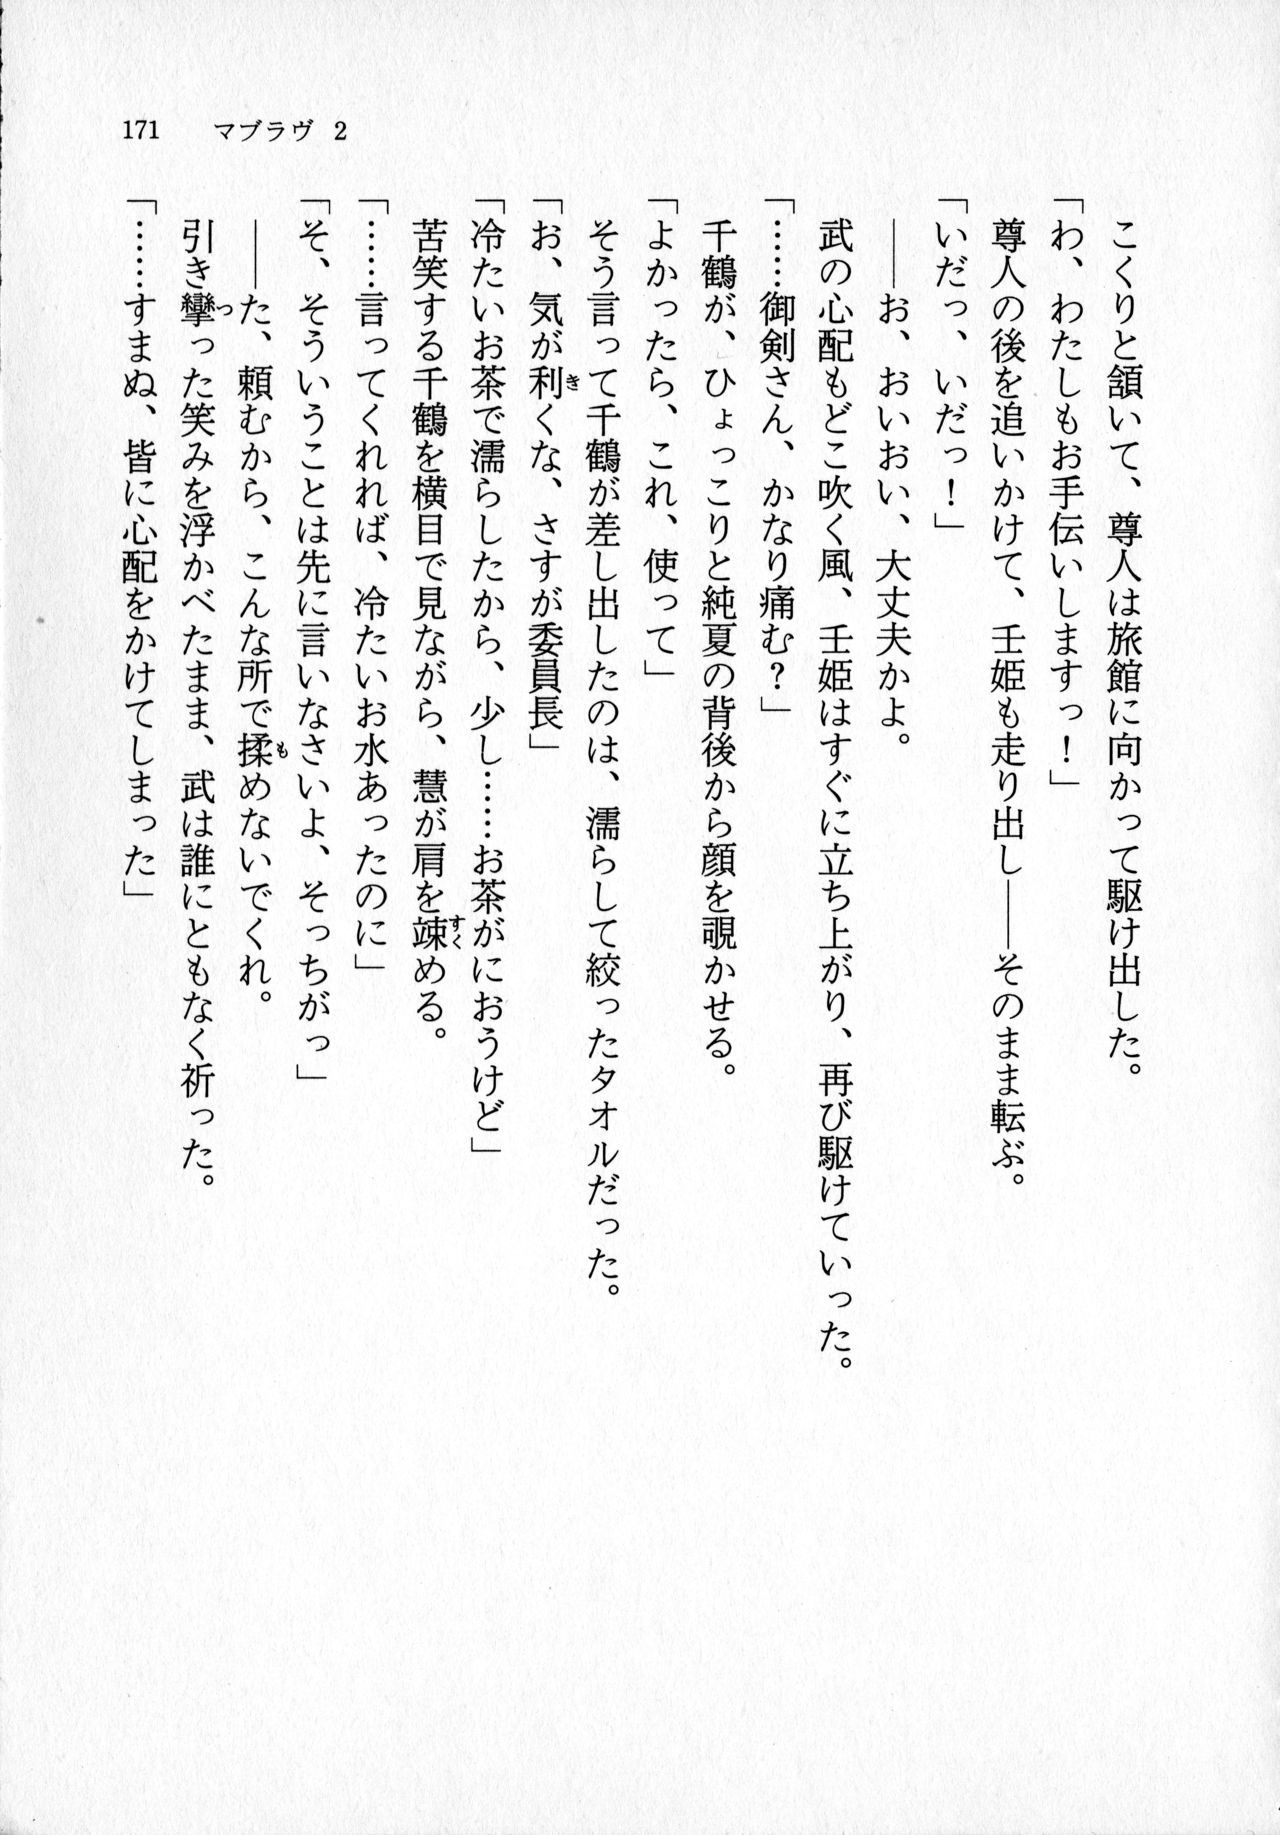 171 マブラヴ 2
こくりと頷いて、尊人は旅館に向かって駆け出した。
「わ、わたしもお手伝いしますっ！」
尊人の後を追いかけて、壬姫も走り出し――そのまま転ぶ。
「いだっ、いだっ！」
――お、おいおい、大丈夫かよ。
武の心配もどこ吹く風、壬姫はすぐに立ち上がり、再び駆けていった。
「……御剣さん、かなり痛む？」
千鶴が、ひょっこりと純夏の背後から顔を覗かせる。
「よかったら、これ、使って」
そう言って千鶴が差し出したのは、濡らして絞ったタオルだった。
「お、気が利くな、さすが委員長」
「冷たいお茶で濡らしたから、少し……お茶がにおうけど」
苦笑する千鶴を横目で見ながら、慧が肩を竦める。
「……言ってくれれば、冷たいお水あったのに」
「そ、そういうことは先に言いなさいよ、そっちがっ」
――た、頼むから、こんな所で揉めないでくれ。
引き攣った笑みを浮かべたまま、武は誰にともなく祈った。
「……すまぬ、皆に心配をかけてしまった」